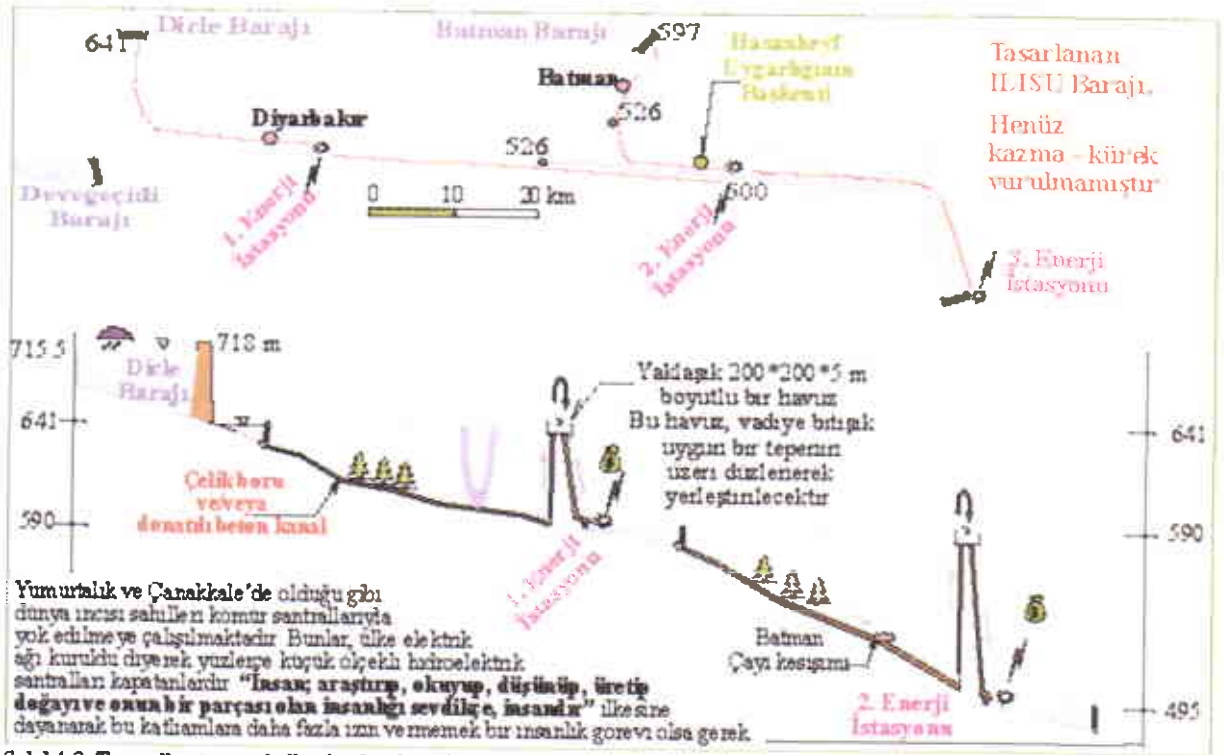 Dicle Barajı
641
Batman Barajı
597
Hasankeyf
Uygarlığının
Başkenti
Tasarlanan
ILISU Barajı.
Henüz
kazma - kürek
vurulmamıştır
Batman
526
Diyarbakır
526
Devegeçidi
Barajı
0 10 20 km
500
1. Enerji
İstasyonu
2. Enerji
İstasyonu
3. Enerji
İstasyonu
715.5
718 m
Dicle
Barajı
641
590
Çelik boru
ve/veya
donatılı beton kanal
Yaklaşık 200*200*5 m
boyutlu bir havuz
Bu havuz, vadiye bitişik
uygun bir tepenin
üzeri düzlenerek
yerleştirilecektir
641
590
495
1. Enerji
İstasyonu
Batman
Çayı kesişimi
2. Enerji
İstasyonu
Yumurtalık ve Çanakkale'de olduğu gibi
dünya incisi sahilleri kömür santrallarıyla
yok edilmeye çalışılmaktadır Bunlar, ülke elektrik
ağı kuruldu diyerek yüzlerce küçük ölçekli hidroelektrik
santralları kapatanlardır "İnsan; araştırıp, okuyup, düşünüp, üretip
doğayı ve onun bir parçası olan insanlığı sevdikçe, insandır" ilkesine
dayanarak bu katliamlara daha fazla izin vermemek bir insanlık görevi olsa gerek